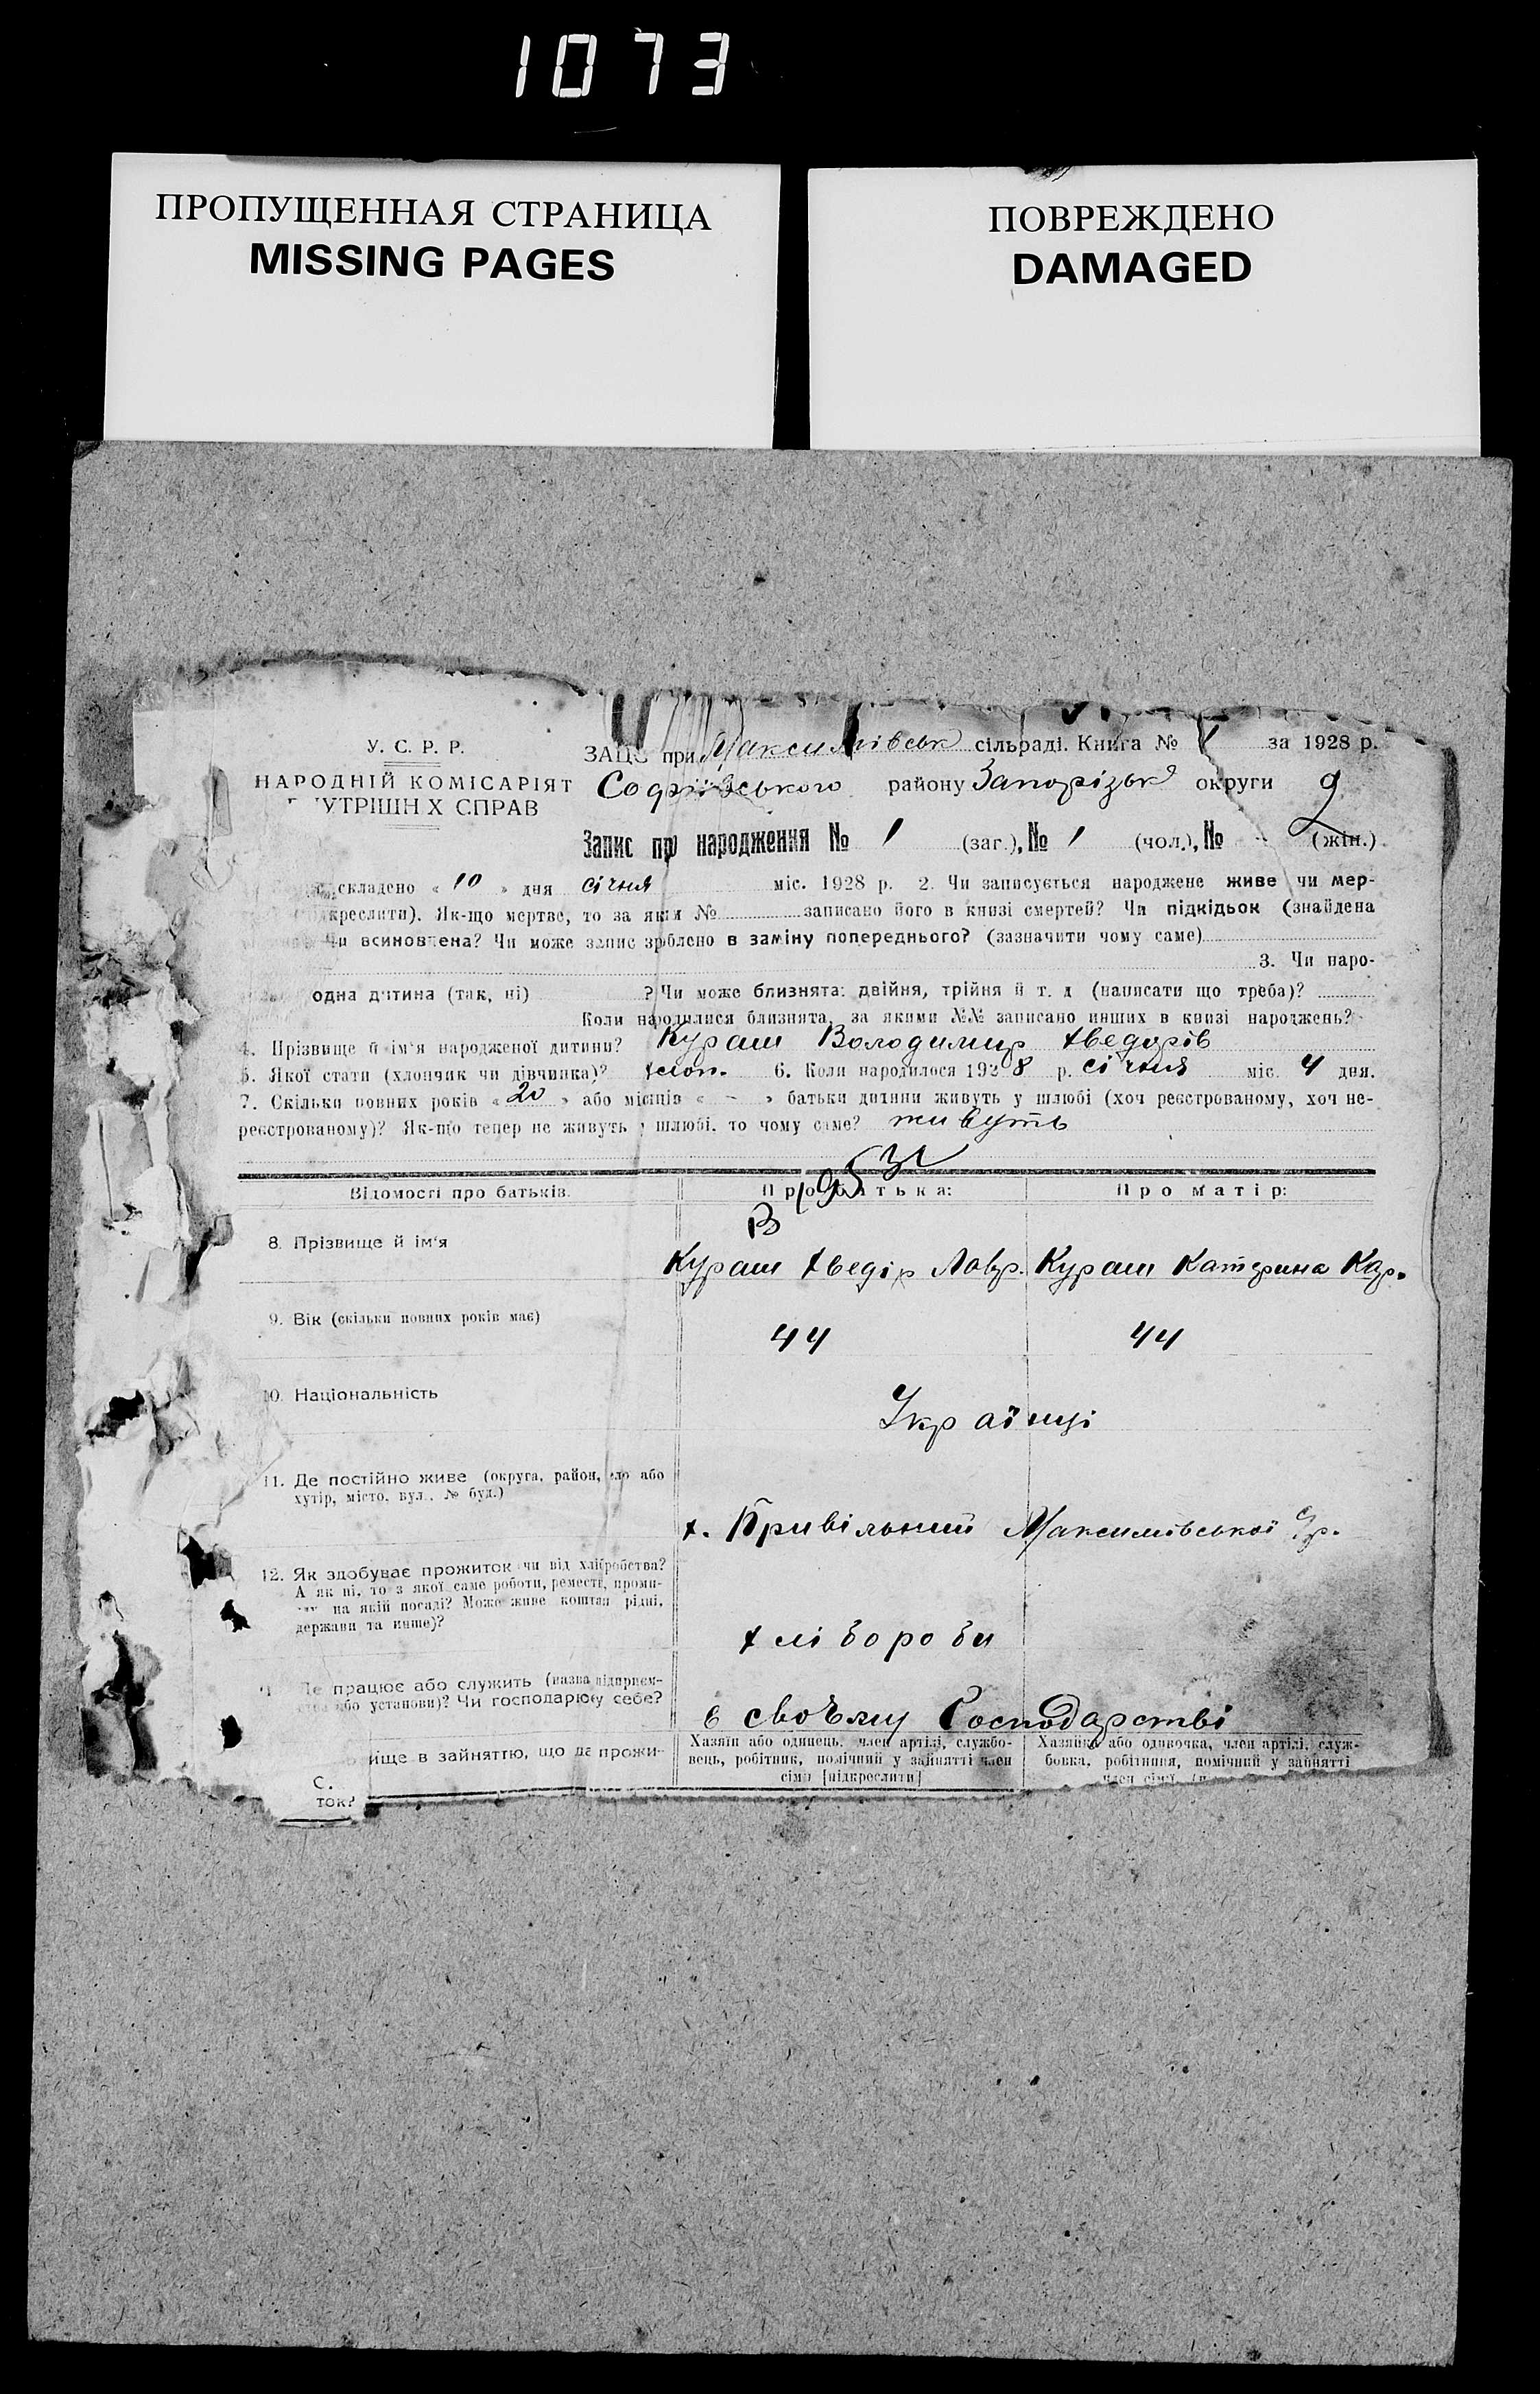 1073
ПРОПУЩЕННАЯ СТРАНИЦА
MISSING PAGES
ПОВРЕЖДЕНО
DAMAGED
У. С. Р. Р.
НАРОДНІЙ КОМІСАРІЯТ
УТРІШН Х СПРАВ
ЗАЦС при Максимівськ сільраді. Книга № 1 за 1928 р.
Софіївського району Запорізьк округи 9
Запис про народження № 1 (заг.), № 1 (чол.), № - (жін.)
складено « 10 » дня січня міс. 1928 р. 2. Чи записується народжене живе чи мер-
креслити). Як-що мертве, то за яким № записано його в книзі смертей? Чи підкідьок (знайдена
Чи всиновлена? Чи може запис зроблено в заміну попереднього? (зазначити чому саме)
3. Чи наро-
одна дитина (так, ні) ? Чи може близнята: двійня, трійня й т. д (написати що треба)?
Коли народилися близнята, за якими №№ записано инших в книзі народжень?
4. Прізвище й ім'я народженої дитини? Кураш Володимир Хведорів
5. Якої стати (хлопчик чи дівчинка)? хлоп. 6. Коли народилося 1928 р. січня міс. 4 дня.
7. Скільки повних років « 20 » або місяців « - » батьки дитини живуть у шлюбі (хоч реєстрованому, хоч не-
реєстрованому)? Як-що тепер не живуть у шлюбі, то чому саме? живуть
Відомості про батьків. Про батька: Про матір:
8. Прізвище й ім'я Кураш Хведір Лавр. Кураш Катерина Кар.
9. Вік (скільки повних років має) 44 44
10. Національність Українці
11. Де постійно живе (округа, район, село або
хутір, місто, вул., № буд.)
х. Привільний Максимівської с/р.
12. Як здобуває прожиток чи від хліборобства?
А як ні, то з якої саме роботи, ремества, проми-
на якій посаді? Може живе коштам рідні,
держави та инше)?
хлібороби
Де працює або служить (назва підприєм-
або установи)? Чи господарює у себе?
в своъму Господарстві
ище в зайнятю, що дає прожи-
ток?
Хазяїн або одинець, член артілі, службо-
вець, робітник, помічний у зайнятті член
сім'ї [підкреслити]
Хазяйка або одиночка, член артілі, служ-
бовка, робітниця, помічний у зайнятті
член сім'ї